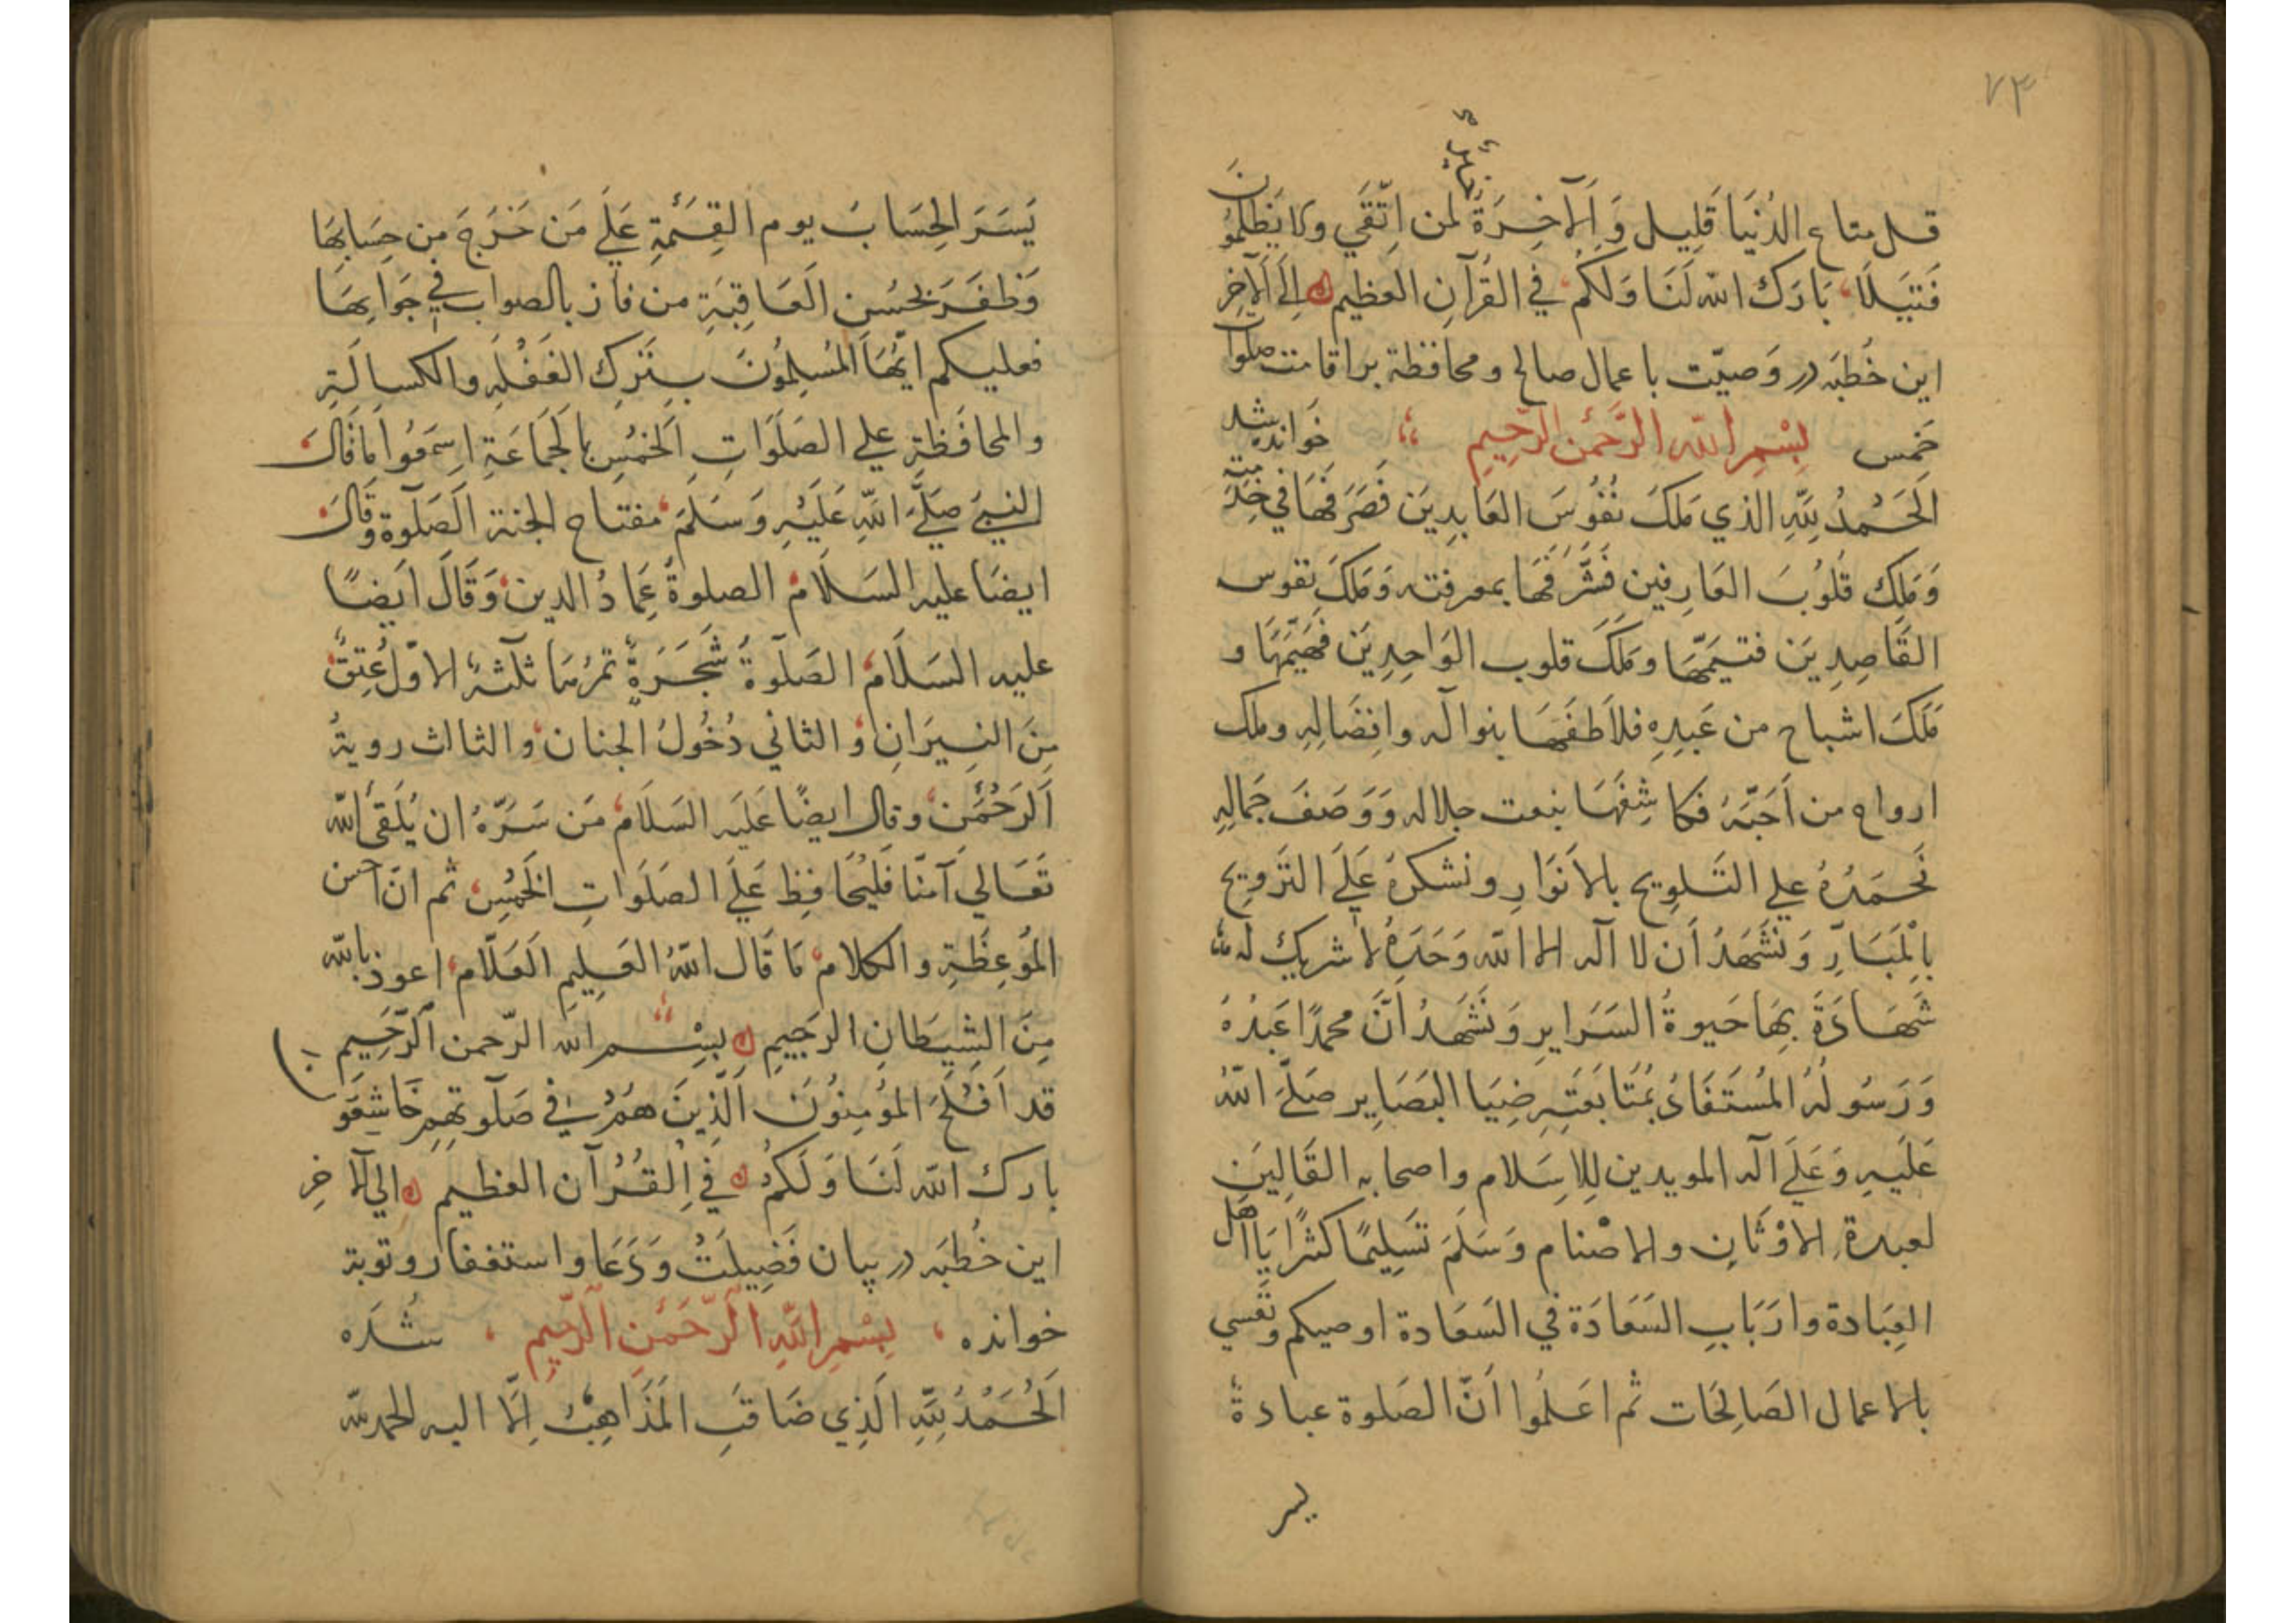 ۷۳
خير
قل متاع الدُنيَا قَلِيل وَالآخِرَةُ لمن اتّقَي ولا يَظلمُونَ
فَتَيَلًا، بَارَك الله لَنَا وَلَكُم في القُرآنِ العظيم ۵ اِلَي الآخِرِ
اين خُطبَه در وَصيّت با عمال صالح و محافظة بر اقامت صلوات
خمس بِسْمِ الله الرَّحمٰن الرّحِيمِ خَوانده شد
اَلحَمْدُ لِلّهِ الذي مَلكَ نُفُوسَ العَابدِينَ فَصَرَفَهَا في خِدْمَتِه
وَمَلكَ قُلُوبَ العَارِفين فَشَّرَفَهَا بمعرفته وَمَلكَ نفوس
القَاصِدِيَن فتيَمَّهَا ومَلَكَ قلوب الوَاجِدِيَن فَهَيَّمَهَا و
مَلَكَ اشباح من عَبِدِهِ فلاَطفَهَا بنواله وافِضَالِهِ وملك
ارواح من اَحَبّهُ فكاشِفَهَا بنعت جلاله وَوَصَفَ جَمَالِهِ
نَحمَدُهُ علي التَلوِيح بالانَوَارِ ونشكرهُ عَلَي التَرَويح
بِالمَبَارّ وَنَشَهَدُ اَن لا اله الا الله وَحَدَهُ لا شريك له
شَهَادَةً بِهَا حَيوةُ السَرَاير وَنَشَهَدُ اَنَّ محمدًا عَبدُهُ
وَرَسُولُهُ المُستَفَادُ بمُتَابَعَتِهِ ضِيَا البَصَايِر صَلَّي اللهُ
عَلَيهِ وَعَلَي اله المويدين لِلاِسَلام واصحابه القَالِينَ
لعبدة الاَوْثَانِ والاصْنام وَسَلَمَ تَسَلِيمًا كثرًا يَا اَهل
العِبَادة وارَبَابِ السَعَادَة في السَعَادة اوصيكم ونَفسي
بالاعمال الصَالِحَات ثم اعَلمُوا اَنّ الصَلوة عبادةٌ
يسر
يَسَرَ الحِسَابَ يوم القِسمَةِ عَلَي مَن خَرَجَ مِن حِسَابهَا
وَظفَرَ بحُسنِ العَاقِبَةِ من فاز بالصواب في جَوابِهَا
فعليكم ايّهَا المُسلِمُونَ بِتَركِ الغَفْلَهِ والكسالَةِ
والمحافَظةِ علي الصَلَوَاتِ الخمسِ بالجَمَاعَةِ اسِمَعُوا مَا قَالَ
النبيَ صَلَّي اللهُ عَلَيْهِ وَسَلَمَ مفتاح الجنة الصَلَوة وقَالَ
ايضًا عليه السَلاَم الصلوةُ عِمَادُ الدين وَقَالَ اَيضًا
عليه السَلَامُ الصَلَوةُ شَجَرَةٌ تمرُهَا ثلثة الاوّل عُتِقٌ
مِنَ النِيرَانِ وَ الثاني دُخُولُ الجنان و الثالث رويةُ
الرَحْمَنِ وقال ايضًا عَلَيه السَلَام مَن سَرَّهُ ان يَلَقي الله
تَعَالي آمنًا فَليحُافِظ عَلَي الصَلَوَاتِ الخَمْسِ ثم انّ احسن
المَوعِظَةِ والكلام مَا قَال اللهُ العَلِيمِ العَلّام اعوذ بالله
مِنَ الشِيَطانِ الرجيِمِ ۵ بِسْمِ الله الرّحمن الرَّحِيم
قد اَفْلَحَ المؤمِنُونَ الَذِينَ هُمْ في صَلَوتِهم خَاشِعَو
بارك الله لَنَا وَلَكُم ۵ في القُرُآن العظيم ۵ الي الآخِرِ
اين خُطبَه در بيان فَضِيلَتْ وَدَعَا واستغفار وتوبة
خوانده بِسْمِ اللّهِ الرّحَمٰنِ الرّحِيم شُدَه
اَلحُمَدُ لِلّهِ الَذِي ضَاقَتِ المَذَاهِبُ اِلّا اليه الحمدلله